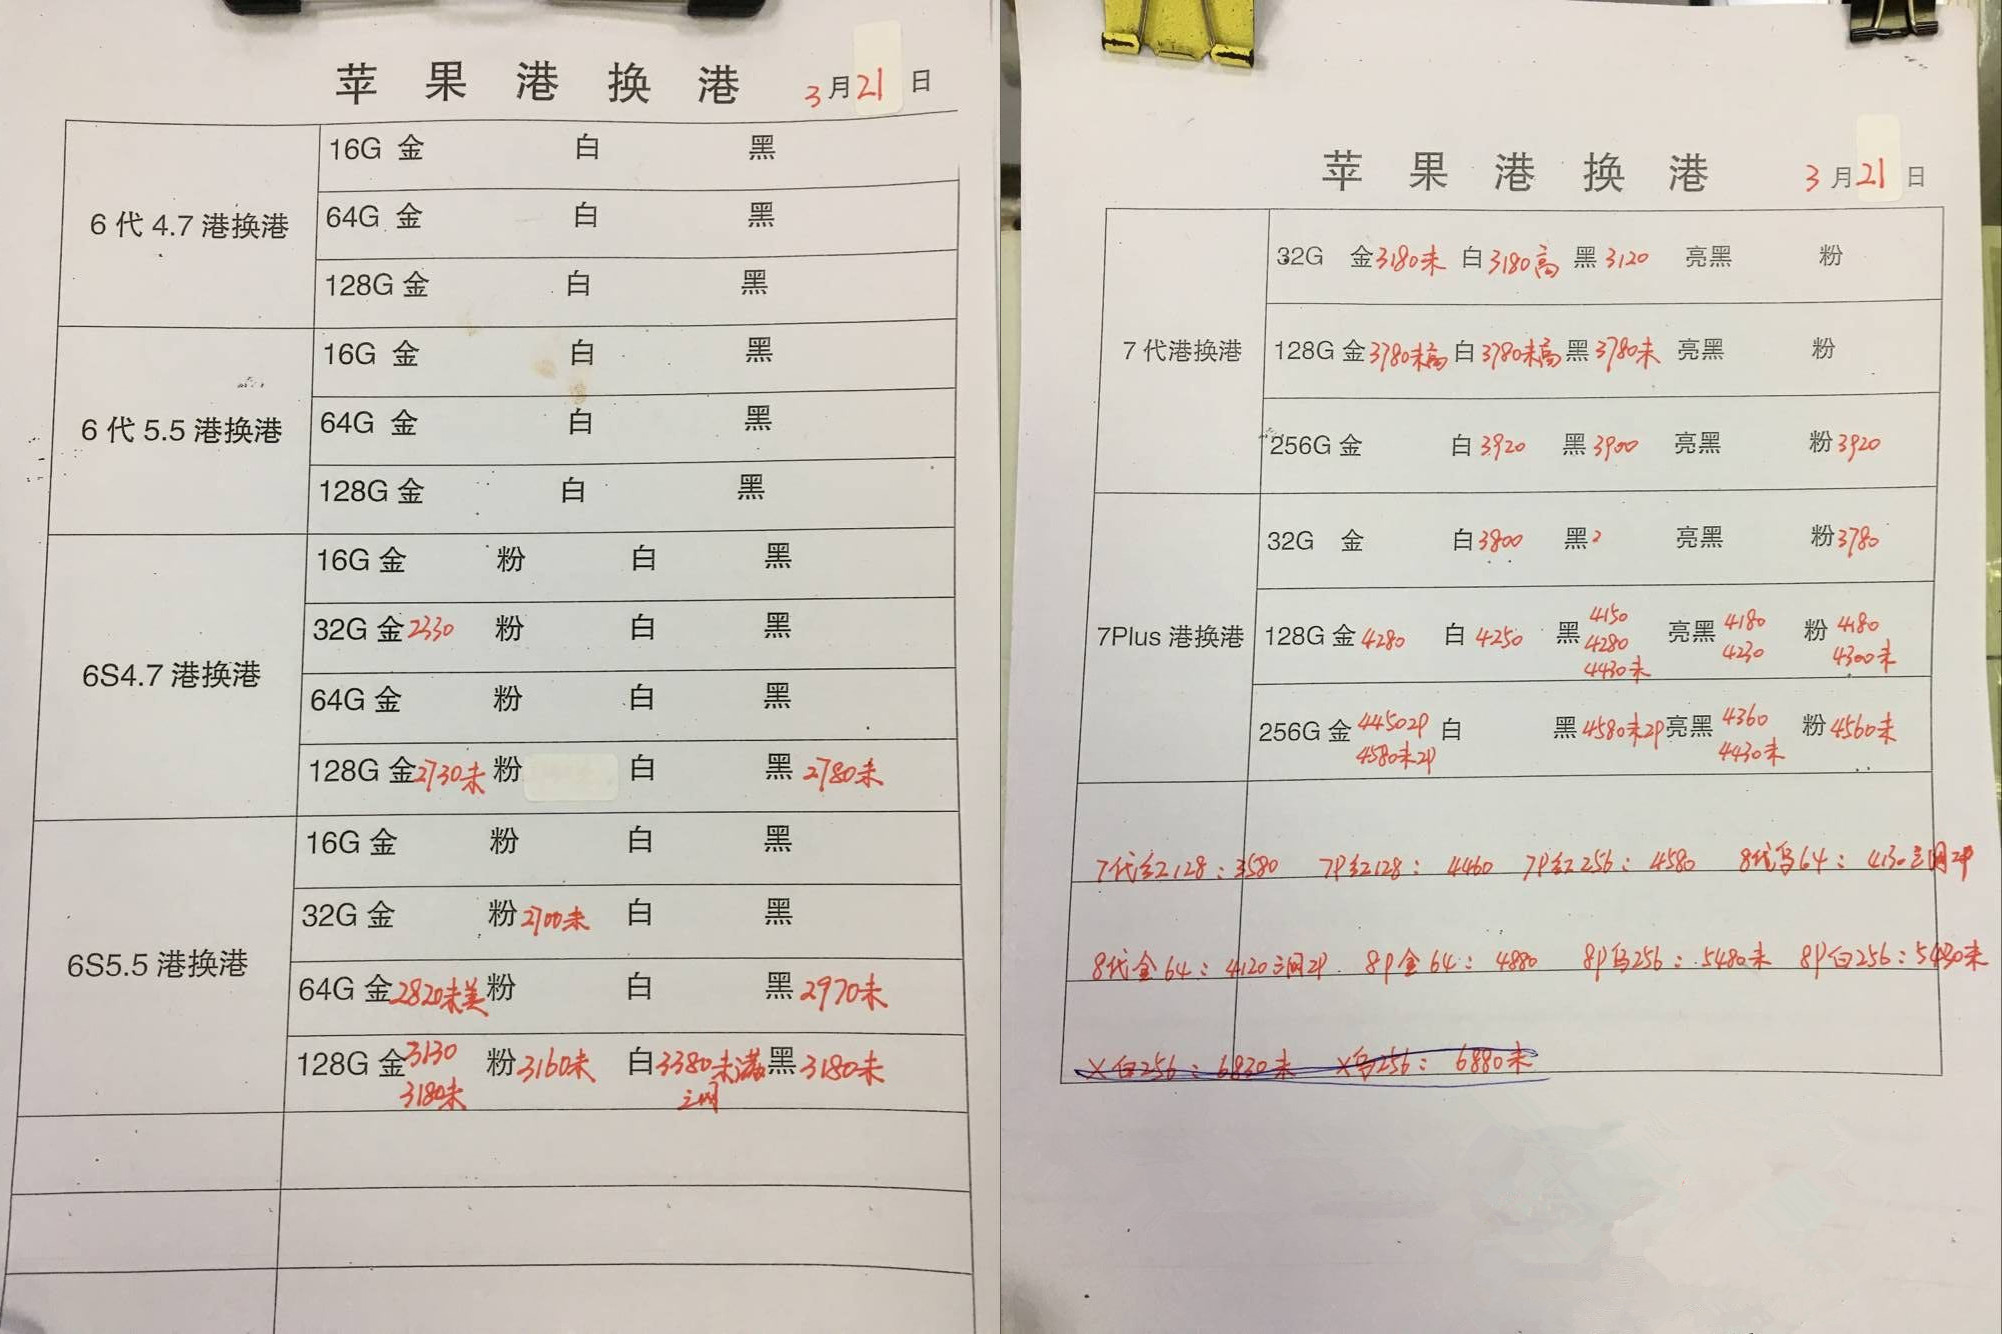 苹果港换港 3月21日
6代4.7港换港
16G 金 白 黑
64G 金 白 黑
128G 金 白 黑
6代5.5港换港
16G 金 白 黑
64G 金 白 黑
128G 金 白 黑
6S4.7港换港
16G 金 粉 白 黑
32G 金2330 粉 白 黑
64G 金 粉 白 黑
128G 金2730未 粉 白 黑2780未
6S5.5港换港
16G 金 粉 白 黑
32G 金 粉2700未 白 黑
64G 金2820未美 粉 白 黑2970未
128G 金3130 粉3160未 白3380未满 黑3180未
3180未 三网
苹果港换港 3月21日
7代港换港
32G 金3180未 白3180高 黑3120 亮黑 粉
128G 金3780未高 白3780未高 黑3780未 亮黑 粉
256G 金 白3920 黑3900 亮黑 粉3920
7Plus港换港
32G 金 白3800 黑 亮黑 粉3780
128G 金4280 白4250 黑4150 亮黑4180 粉4180
4280 4230 4300未
4430未
256G 金44502P 白 黑4580未2P 亮黑4360 粉4560未
4580未2P 4430未
7代红128：3580 7P红128：4460 7P红256：4580 8代乌64：4130三网2P
8代金64：4120三网2P 8P金64：4880 8P乌256：5480未 8P白256：5430未
X白256：6830未 X乌256：6880未